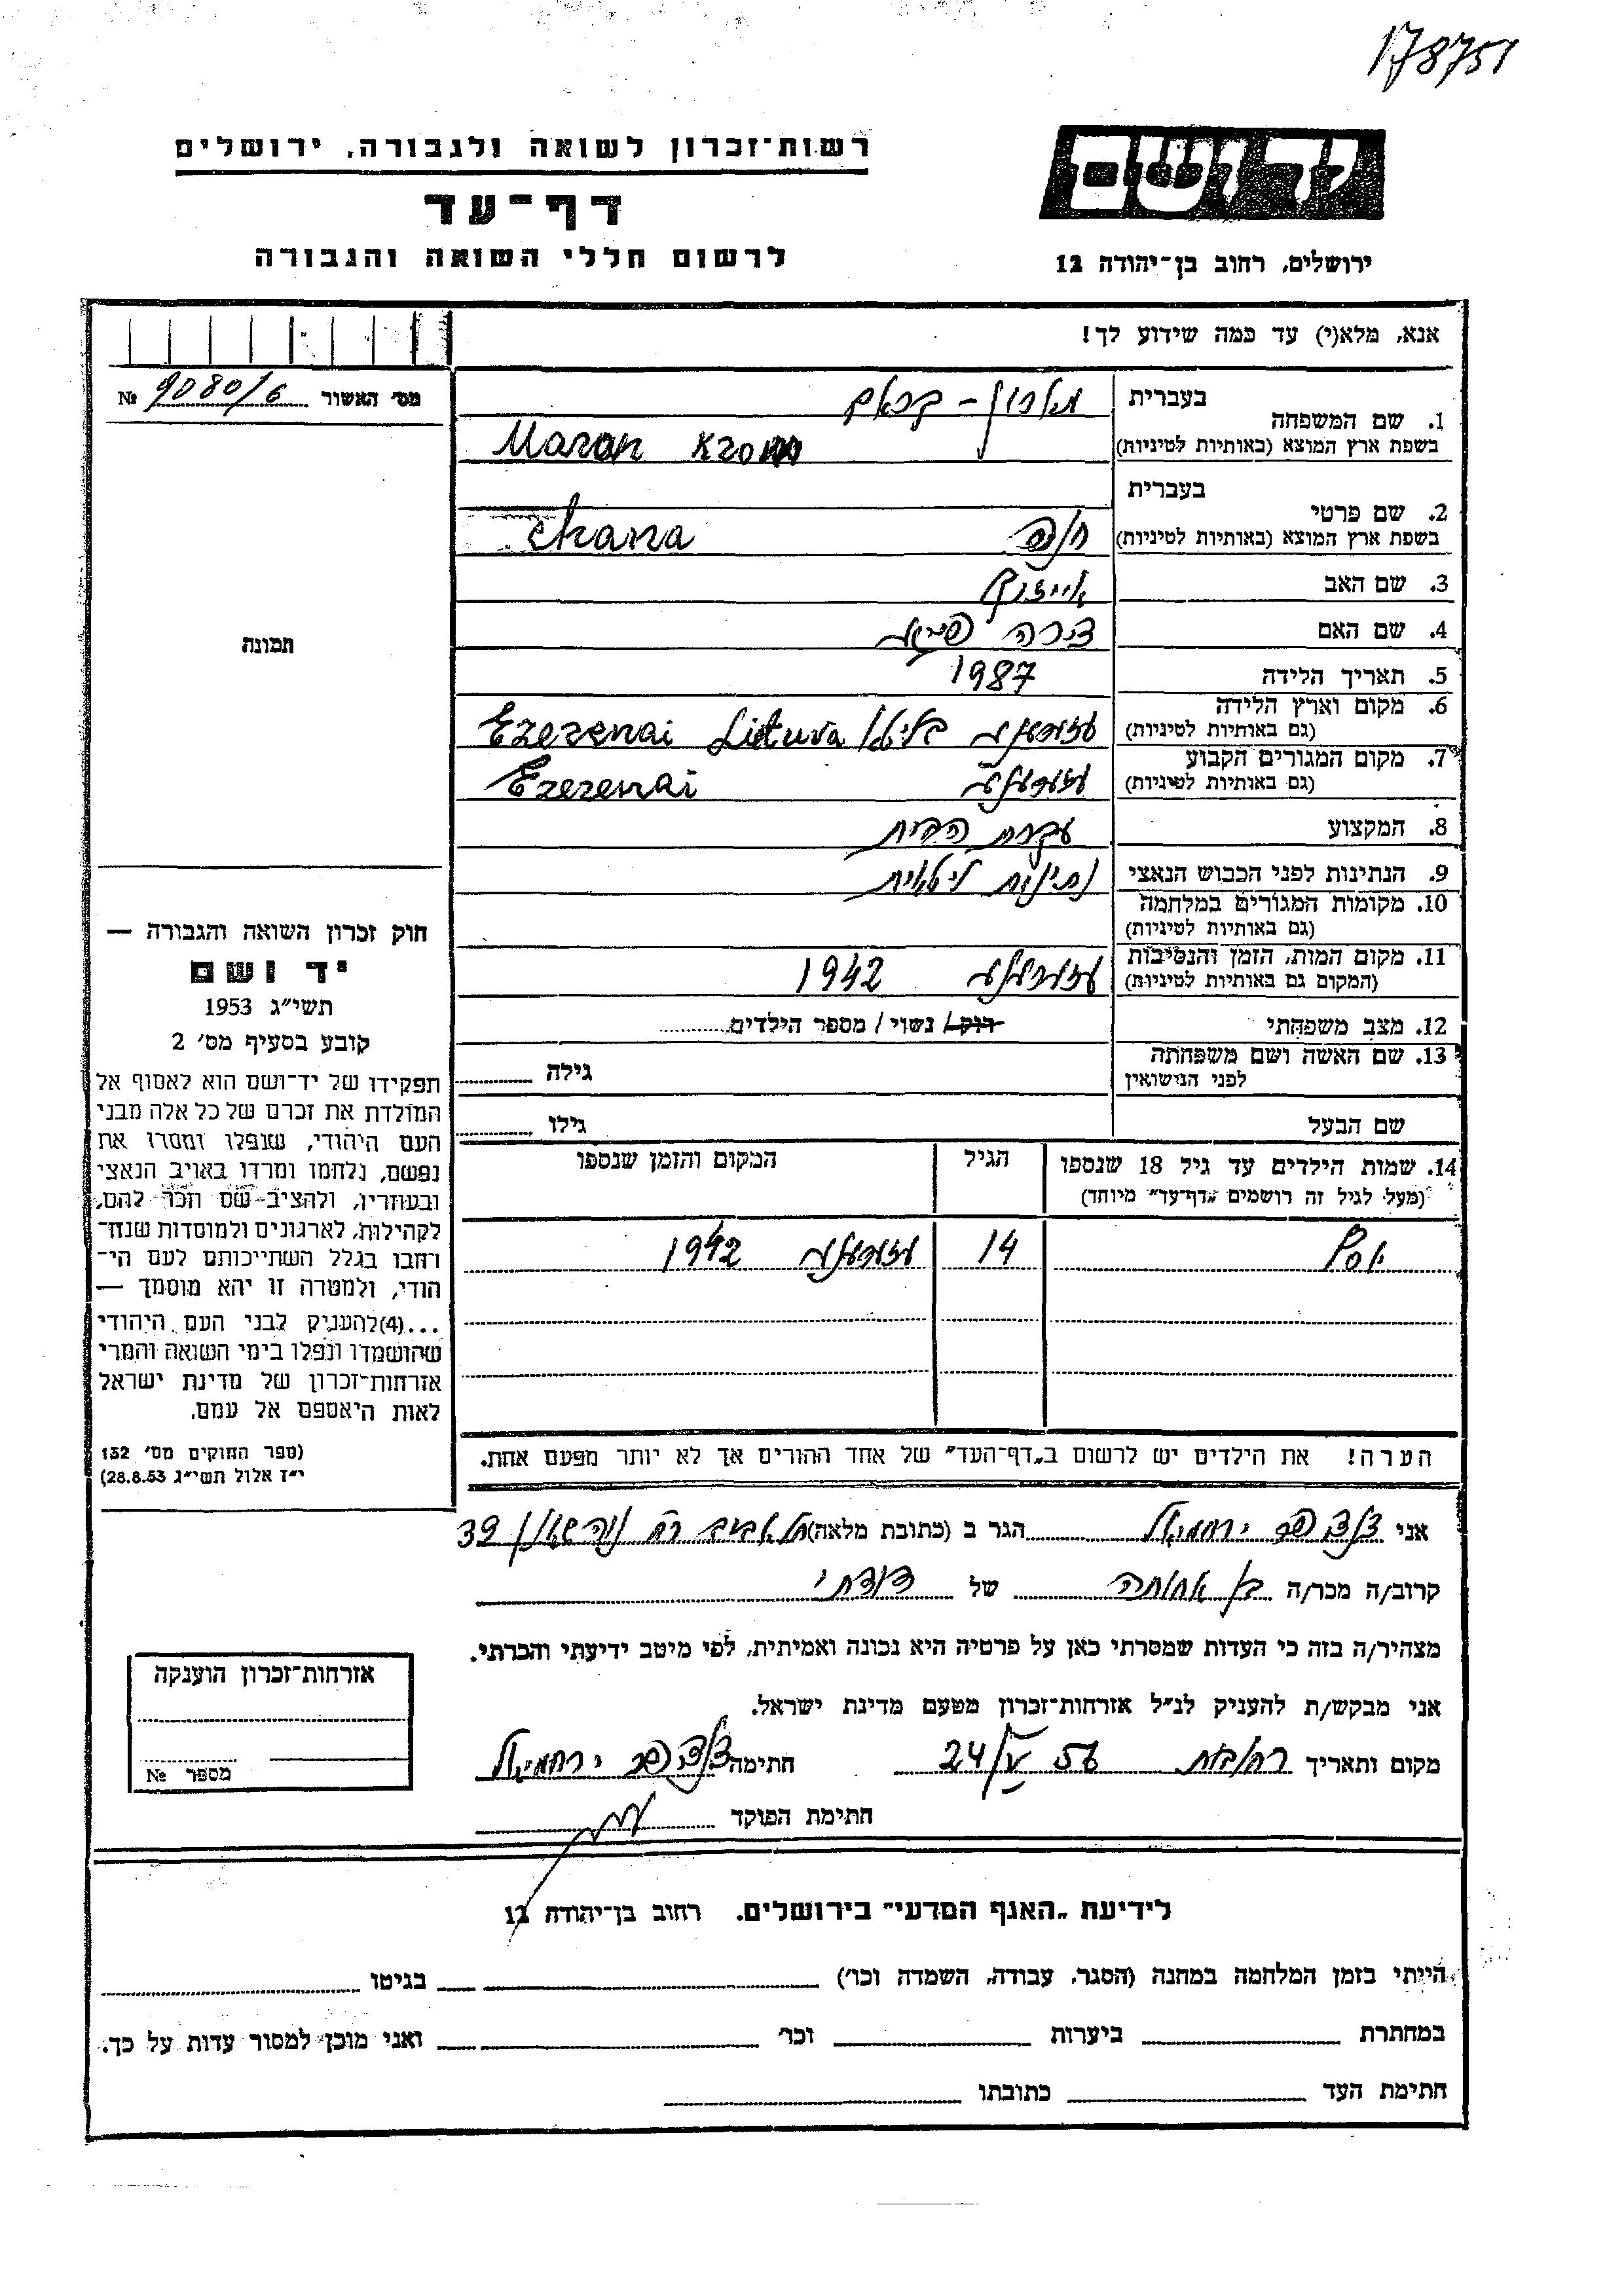 178751
רשות־זכרון לשואה ולגבורה, ירושלים
דף־עד
לרשום חללי השואה והגבורה
יד ושם
ירושלים, רחוב בן־יהודה 12
אנא, מלא(י) עד כמה שידוע לך!
מס׳ האשור 9080/6 №
תמונה
1. שם המשפחה בעברית
בשפת ארץ המוצא (באותיות לטיניות) Maron
2. שם פרטי בעברית
בשפת ארץ המוצא (באותיות לטיניות) חנה chana
3. שם האב
4. שם האם
5. תאריך הלידה 1987
6. מקום וארץ הלידה
(גם באותיות לטיניות) Ezerenai Lietuva
7. מקום המגורים הקבוע
(גם באותיות לטיניות) Ezerenai
8. המקצוע עקרת הבית
9. הנתינות לפני הכבוש הנאצי נתינות ליטאית
10. מקומות המגורים במלחמה
(גם באותיות לטיניות)
11. מקום המות, הזמן והנסיבות
(המקום גם באותיות לטיניות) 1942
12. מצב משפחתי רוק / נשוי / מספר הילדים
13. שם האשה ושם משפחתה
לפני הנישואין גילה
שם הבעל גילו
14. שמות הילדים עד גיל 18 שנספו הגיל המקום והזמן שנספו
(מעל לגיל זה רושמים „דף־עד״ מיוחד)
יוסף 14 1942
הערה! את הילדים יש לרשום ב„דף־העד״ של אחד ההורים אך לא יותר מפעם אחת.
חוק זכרון השואה והגבורה —
יד ושם
תשי״ג 1953
קובע בסעיף מס׳ 2
תפקידו של יד־ושם הוא לאסוף אל
המולדת את זכרם של כל אלה מבני
העם היהודי, שנפלו ומסרו את
נפשם, נלחמו ומרדו באויב הנאצי
ובעוזריו, ולהציב שם וזכר להם,
לקהילות, לארגונים ולמוסדות שנח־
רבו בגלל השתייכותם לעם הי־
הודי, ולמטרה זו יהא מוסמך —
...(4) להעניק לבני העם היהודי
שהושמדו ונפלו בימי השואה והמרי
אזרחות־זכרון של מדינת ישראל
לאות היאספם אל עמם.
(ספר החוקים מס׳ 132
י״ז אלול תשי״ג 28.8.53)
אני ירחמיאל הגר ב (כתובת מלאה) תל אביב רח 39
קרוב/ה מכר/ה בן אחותה של דודתי
מצהיר/ה בזה כי העדות שמסרתי כאן על פרטיה היא נכונה ואמיתית, לפי מיטב ידיעתי והכרתי.
אני מבקש/ת להעניק לנ״ל אזרחות־זכרון מטעם מדינת ישראל.
מקום ותאריך רחובות 24/V 56 חתימה ירחמיאל
חתימת הפוקד
אזרחות־זכרון הוענקה
מספר №
לידיעת „האגף המדעי״ בירושלים. רחוב בן־יהודה 12
הייתי בזמן המלחמה במחנה (הסגר, עבודה, השמדה וכו׳) בגיטו
במחתרת ביערות וכו׳ ואני מוכן למסור עדות על כך.
חתימת העד כתובתו